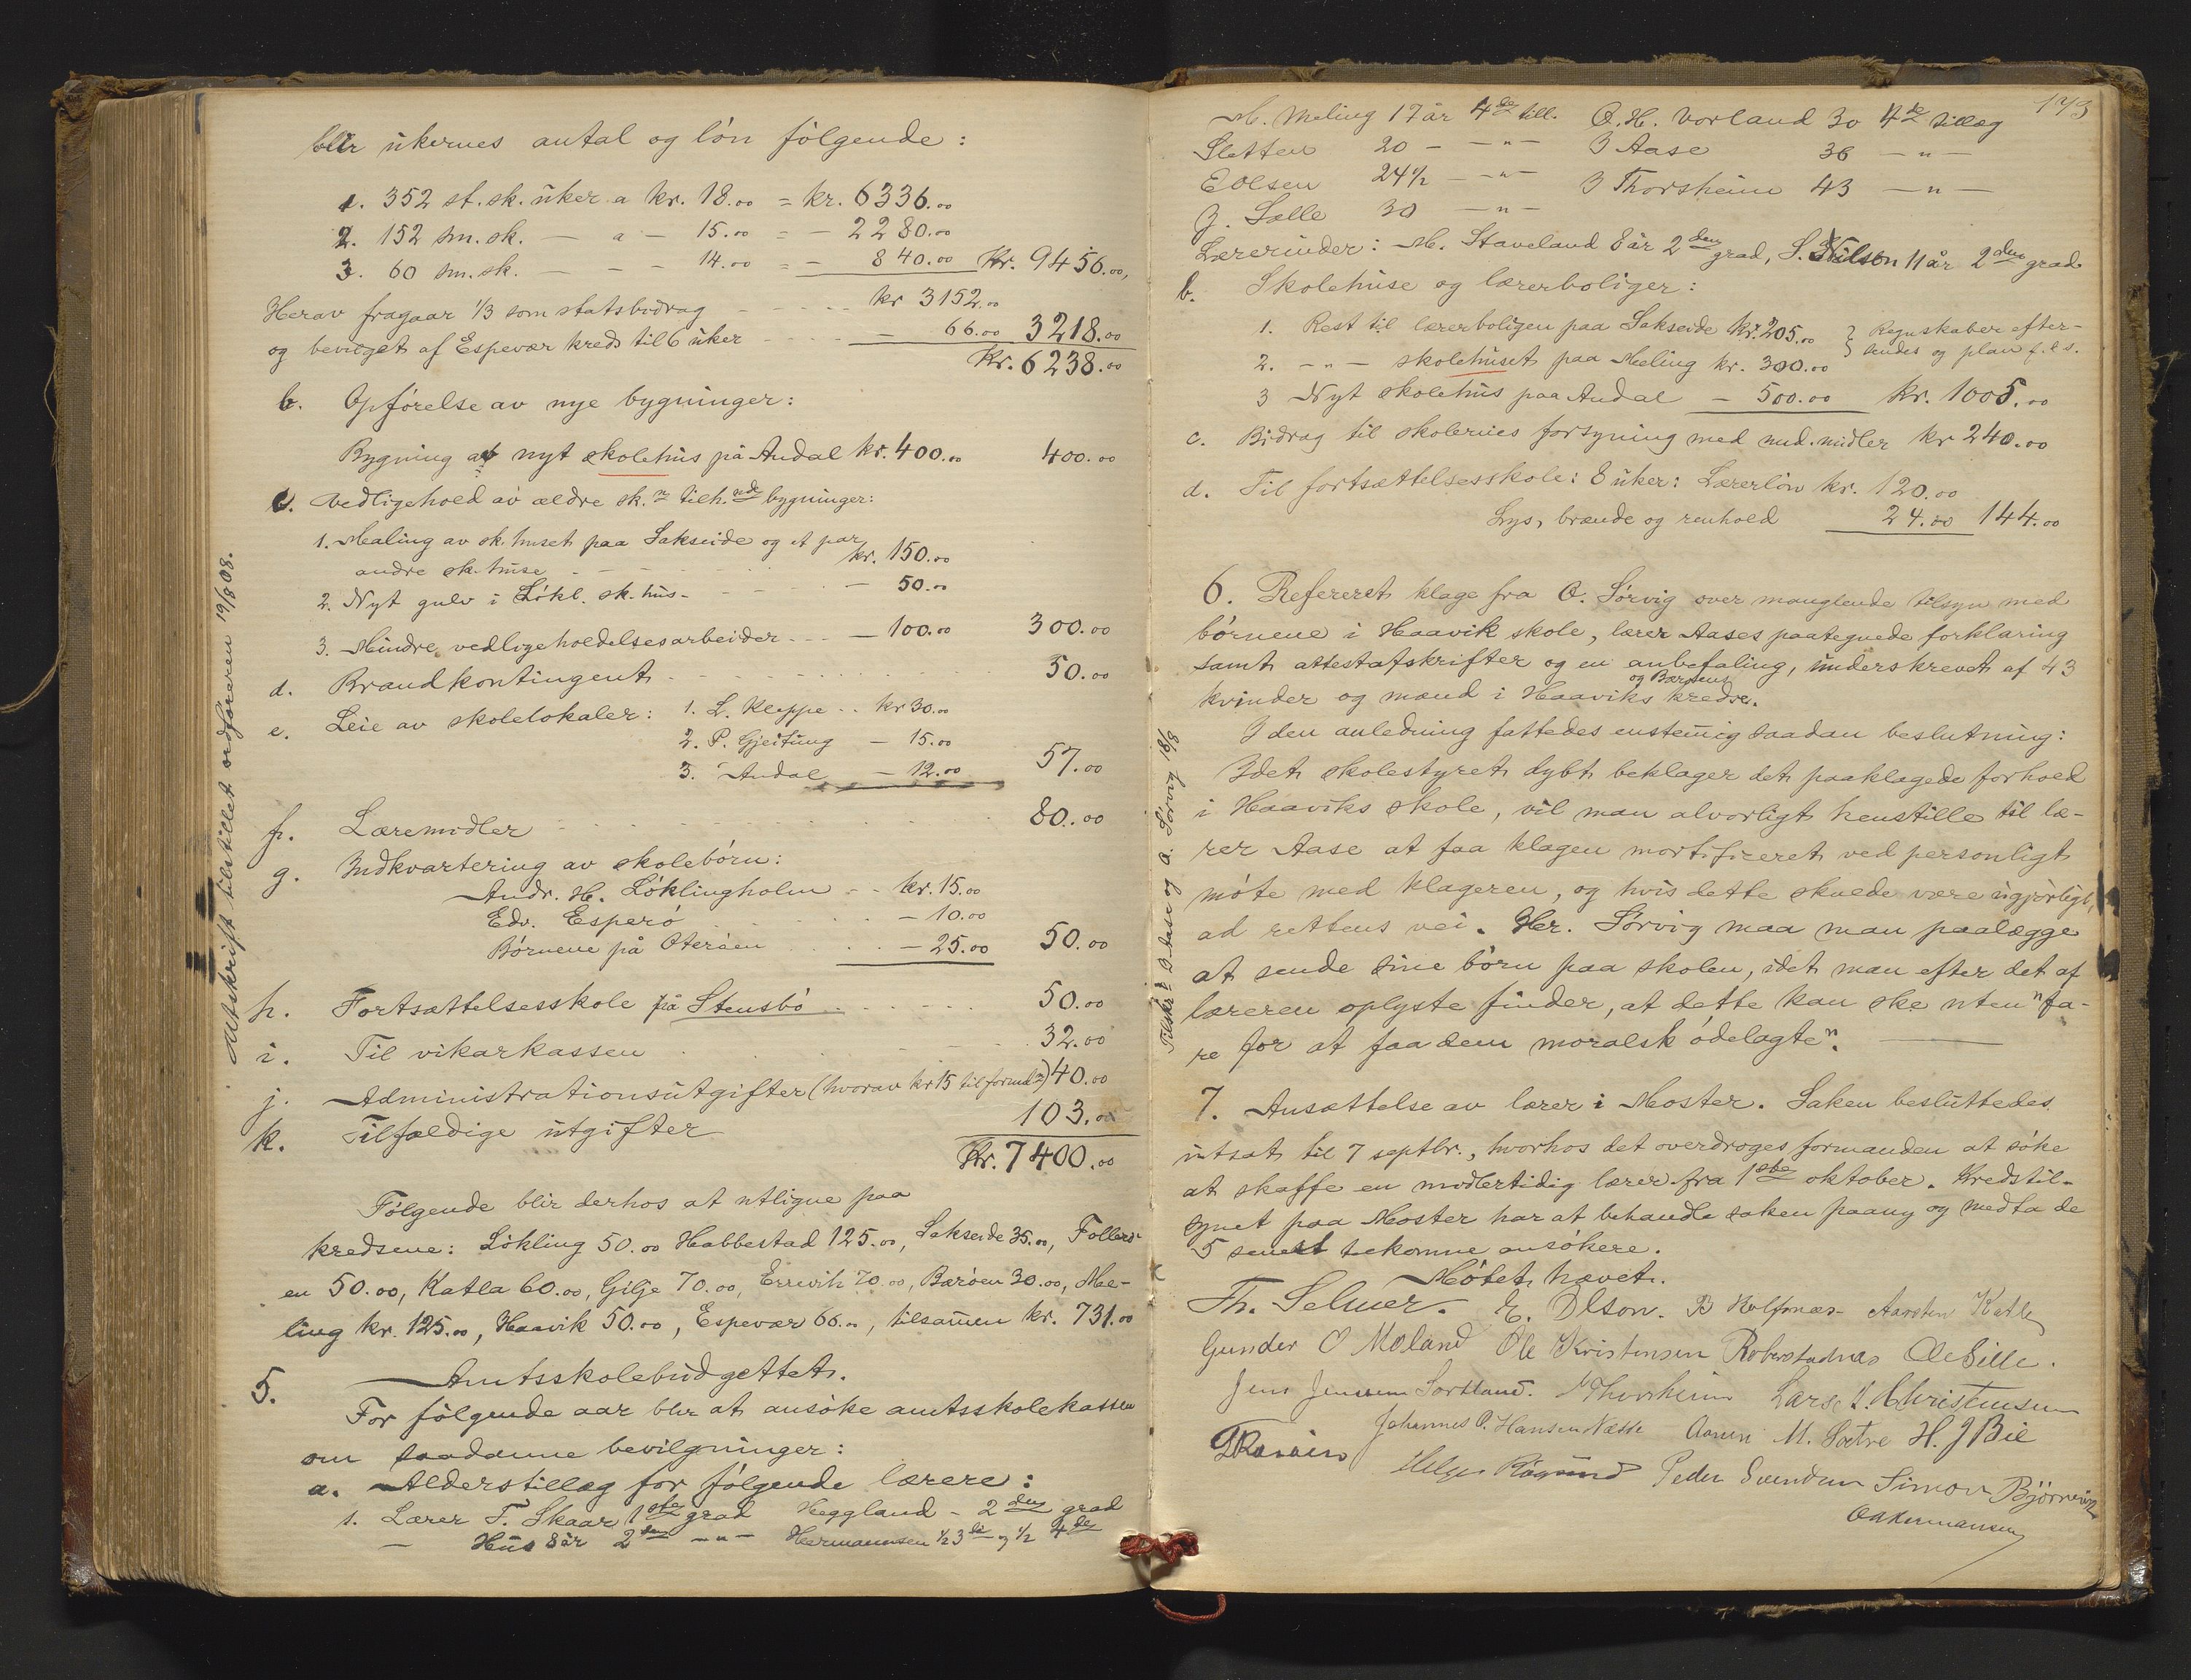 blir ukernes antal og løn følgende:
1. 352 st. sk. uker a kr. 18.00 = kr. 6336.00
2. 152 sm. sk. — a — 15.00 = — 2280.00
3. 60 sm. sk. — — — 14.00 = — 840.00 Kr. 9456.00,
Herav fragaar 1/3 som statsbidrag — kr 3152.00
og bevilget af Espevær kreds til 6 uker — 66.00 3218.00
Kr. 6238.00
b. Opførelse av nye bygninger:
Bygning af nyt skolehus på Andal kr. 400.00 400.00
c. Vedligehold av ældre sk. n tilh. nde bygninger:
1. Maling av sk. huset paa Sakseide og et par
andre sk. huse kr. 150.00
2. Nyt gulv i Løkl. sk. hus - — 50.00
3. Mindre vedligeholdelsesarbeider — 100.00 300.00
d. Brandkontingent 50.00
e. Leie av skolelokaler: 1. L. Kleppe kr 30.00
2. P. Gjeitung — 15.00
3. Andal — 12.00 57.00
f. Læremidler 80.00
g. Indkvartering av skolebørn:
Andr. H. Løklingholm kr. 15.00
Edv. Esperø — 10.00
Børnene på Oterøen — 25.00 50.00
h. Fortsættelsesskole på Stensbø 50.00
i. Til vikarkassen 32.00
j. Administrationsutgifter (hvorav kr 15 til formd n) 40.00
k. Tilfældige utgifter 103.00
Kr. 7400.00
Følgende blir derhos at utligne paa
kredsene: Løkling 50.00 Habbestad 125.00, Sakseide 35.00, Follerø-
en 50.00, Katla 60.00, Gilje 70.00, Errevik 70.00, Barøen 30.00, Me-
ling kr. 125.00, Haavik 50.00, Espevær 66.00, tilsammen kr. 731.00
5. Amtsskolebudgettet.
For følgende aar blir at ansøke amtsskolekassen
om saadanne bevilgninger:
a. Alderstillæg for følgende lærere:
1. Lærer T. Skaar 1ste grad Heggland - 2den grad
— Hus 8 år 2den —"— Hermannsen 1/2 3die og 1/2 4de
Avskrift tilstillet ordføreren 19/8 08.
173
M. Meling 17 år 4de till. O. H. Vorland 30 4de tillæg
Sletten 20 — —"— J Aase 36 —"—
E Olsen 24 1/2 —"— J Thorsheim 43 —"—
J. Sælle 30 —"—
Lærerinder: M. Staveland 8 år 2den grad, S. Nilson 11 år 2den grad
b. Skolehuse og lærerboliger:
1. Rest til lærerboligen paa Sakseide kr. 205.00 } Regnskaber efter-
2. —"— skolehuset paa Meling kr. 300.00 } sendes og plan f. l. s.
3 Nyt skolehus paa Andal — 500.00 kr. 1005.00
c. Bidrag til skolernes forsyning med und. midler kr 240.00
d. Til fortsættelsesskole: 8 uker: Lærerløn kr. 120.00
Lys, brænde og renhold 24.00 144.00
6. Refereret klage fra O. Sørvig over manglende tilsyn med
børnene i Haavik skole, lærer Aases paategnede forklaring
samt attestafskrifter og en anbefaling, underskrevet af 43
kvinder og mænd i Haaviks og Barøens kredse.
I den anledning fattedes enstemig saadan beslutning:
Idet skolestyret dybt beklager det paaklagede forhold
i Haaviks skole, vil man alvorligt henstille til læ-
rer Aase at faa klagen mortificeret ved personligt
møte med klageren, og hvis dette skulde være ugjørligt,
ad rettens vei. Hr. Sørvig maa man paalægge
at sende sine børn paa skolen, idet man efter det af
læreren oplyste finder, at dette kan ske uten "fa-
re for at faa dem moralsk ødelagte".
Tilskr. J Aase og O. Sørvig 18/8
7. Ansættelse av lærer i Moster. Saken besluttedes
utsat til 7 septbr., hvorhos det overdroges formanden at søke
at skaffe en midlertidig lærer fra 1ste oktober. Kredstil-
synet paa Moster har at behandle saken paany og medta de
5 senest tilkomne ansøkere.
Møtet hævet.
Th. Selmer. E. Olson. B Rolfsnæs Aarsten Katle
Gunder O Moland Ole Kristensen Roberstadnæs Ole Sille.
Jens Jenssen Sortland. Thorsheim Lars I. Christensen
Johannes O. Hansen Næsse M. Sætre H. J Bie
Helge Røgsund Peder Svendsen Simon Bjørnevik
O A Hermansen